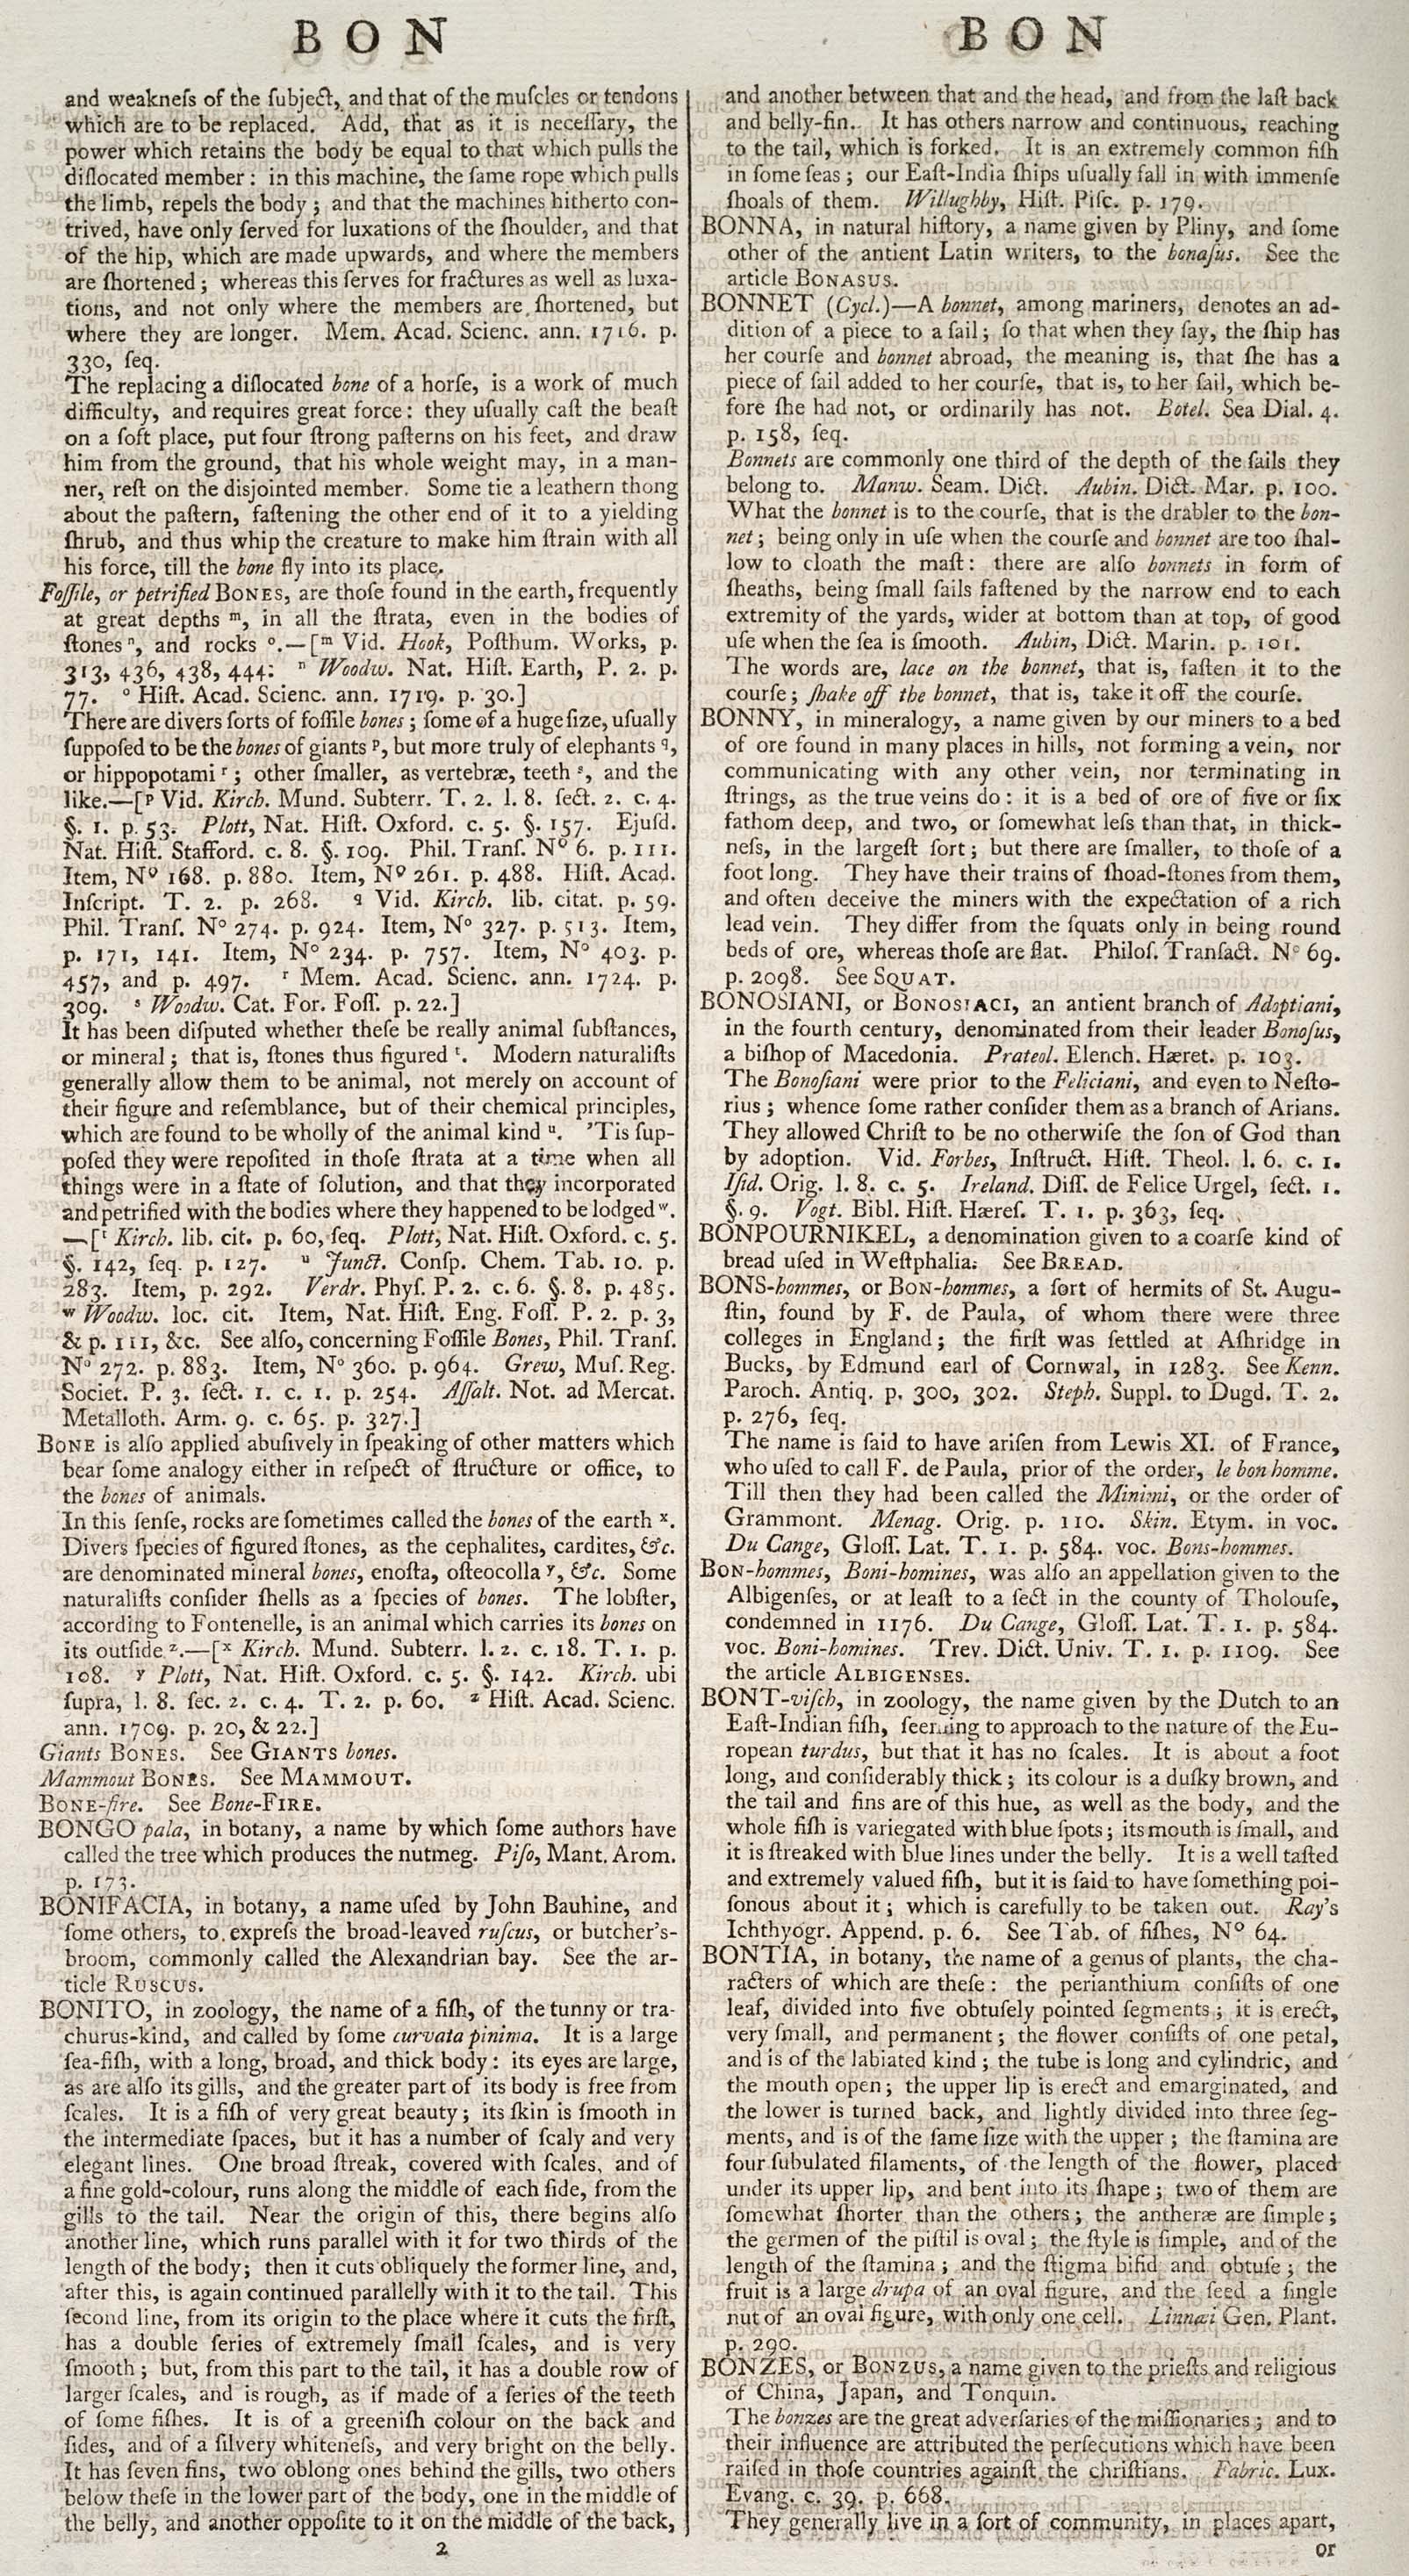 BON
and weakneſs of the ſubject, and that of the muſcles or tendons
which are to be replaced. Add, that as it is neceſſary, the
power which retains the body be equal to that which pulls the
diſlocated member : in this machine, the ſame rope which pulls
the limb, repels the body ; and that the machines hitherto con-
trived, have only ſerved for luxations of the ſhoulder, and that
of the hip, which are made upwards, and where the members
are ſhortened ; whereas this ſerves for fractures as well as luxa-
tions, and not only where the members are ſhortened, but
where they are longer. Mem. Acad. Scienc. ann. 1716. p.
330, ſeq.
The replacing a diſlocated bone of a horſe, is a work of much
difficulty, and requires great force : they uſually caſt the beaſt
on a ſoft place, put four ſtrong paſterns on his feet, and draw
him from the ground, that his whole weight may, in a man-
ner, reſt on the disjointed member. Some tie a leathern thong
about the paſtern, faſtening the other end of it to a yielding
ſhrub, and thus whip the creature to make him ſtrain with all
his force, till the bone fly into its place.
Foſſile, or petrified BONES, are thoſe found in the earth, frequently
at great depths ᵐ, in all the ſtrata, even in the bodies of
ſtones ⁿ, and rocks º.—[ᵐ Vid. Hook, Poſthum. Works, p.
313, 436, 438, 444: ⁿ Woodw. Nat. Hiſt. Earth, P. 2. p.
77. º Hiſt. Acad. Scienc. ann. 1719. p. 30.]
There are divers ſorts of foſſile bones ; ſome of a huge ſize, uſually
ſuppoſed to be the bones of giants ᵖ, but more truly of elephants q,
or hippopotami ʳ ; other ſmaller, as vertebræ, teeth ˢ, and the
like.—[ᵖ Vid. Kirch. Mund. Subterr. T. 2. l. 8. ſect. 2. c. 4.
§. 1. p. 53. Plott, Nat. Hiſt. Oxford. c. 5. §. 157. Ejuſd.
Nat. Hiſt. Stafford. c. 8. §. 109. Phil. Tranſ. Nº 6. p. 111.
Item, Nº 168. p. 880. Item, Nº 261. p. 488. Hiſt. Acad.
Inſcript. T. 2. p. 268. q Vid. Kirch. lib. citat. p. 59.
Phil. Tranſ. Nº 274. p. 924. Item, Nº 327. p. 513. Item,
p. 171, 141. Item, Nº 234. p. 757. Item, Nº 403. p.
457, and p. 497. ʳ Mem. Acad. Scienc. ann. 1724. p.
309. ˢ Woodw. Cat. For. Foſſ. p. 22.]
It has been diſputed whether theſe be really animal ſubſtances,
or mineral ; that is, ſtones thus figured ᵗ. Modern naturaliſts
generally allow them to be animal, not merely on account of
their figure and reſemblance, but of their chemical principles,
which are found to be wholly of the animal kind ᵘ. 'Tis ſup-
poſed they were repoſited in thoſe ſtrata at a time when all
things were in a ſtate of ſolution, and that they incorporated
and petrified with the bodies where they happened to be lodged ʷ.
—[ᵗ Kirch. lib. cit. p. 60, ſeq. Plott, Nat. Hiſt. Oxford. c. 5.
§. 142, ſeq. p. 127. ᵘ Junct. Conſp. Chem. Tab. 10. p.
283. Item, p. 292. Verdr. Phyſ. P. 2. c. 6. §. 8. p. 485.
ʷ Woodw. loc. cit. Item, Nat. Hiſt. Eng. Foſſ. P. 2. p. 3,
& p. 111, &c. See alſo, concerning Foſſile Bones, Phil. Tranſ.
Nº 272. p. 883. Item, Nº 360. p. 964. Grew, Muſ. Reg.
Societ. P. 3. ſect. 1. c. 1. p. 254. Aſſalt. Not. ad Mercat.
Metalloth. Arm. 9. c. 65. p. 327.]
BONE is alſo applied abuſively in ſpeaking of other matters which
bear ſome analogy either in reſpect of ſtructure or office, to
the bones of animals.
In this ſenſe, rocks are ſometimes called the bones of the earth ˣ.
Divers ſpecies of figured ſtones, as the cephalites, cardites, &c.
are denominated mineral bones, enoſta, oſteocolla ʸ, &c. Some
naturaliſts conſider ſhells as a ſpecies of bones. The lobſter,
according to Fontenelle, is an animal which carries its bones on
its outſide ᶻ.—[ˣ Kirch. Mund. Subterr. l. 2. c. 18. T. 1. p.
108. ʸ Plott, Nat. Hiſt. Oxford. c. 5. §. 142. Kirch. ubi
ſupra, l. 8. ſec. 2. c. 4. T. 2. p. 60. ᶻ Hiſt. Acad. Scienc.
ann. 1709. p. 20, & 22.]
Giants BONES. See GIANTS bones.
Mammout BONES. See MAMMOUT.
BONE-fire. See Bone-FIRE.
BONGO pala, in botany, a name by which ſome authors have
called the tree which produces the nutmeg. Piſo, Mant. Arom.
p. 173.
BONIFACIA, in botany, a name uſed by John Bauhine, and
ſome others, to expreſs the broad-leaved ruſcus, or butcher's-
broom, commonly called the Alexandrian bay. See the ar-
ticle RUSCUS.
BONITO, in zoology, the name of a fiſh, of the tunny or tra-
churus-kind, and called by ſome curvata pinima. It is a large
ſea-fiſh, with a long, broad, and thick body : its eyes are large,
as are alſo its gills, and the greater part of its body is free from
ſcales. It is a fiſh of very great beauty ; its ſkin is ſmooth in
the intermediate ſpaces, but it has a number of ſcaly and very
elegant lines. One broad ſtreak, covered with ſcales, and of
a fine gold-colour, runs along the middle of each ſide, from the
gills to the tail. Near the origin of this, there begins alſo
another line, which runs parallel with it for two thirds of the
length of the body; then it cuts obliquely the former line, and,
after this, is again continued parallelly with it to the tail. This
ſecond line, from its origin to the place where it cuts the firſt,
has a double ſeries of extremely ſmall ſcales, and is very
ſmooth ; but, from this part to the tail, it has a double row of
larger ſcales, and is rough, as if made of a ſeries of the teeth
of ſome fiſhes. It is of a greeniſh colour on the back and
ſides, and of a ſilvery whiteneſs, and very bright on the belly.
It has ſeven fins, two oblong ones behind the gills, two others
below theſe in the lower part of the body, one in the middle of
the belly, and another oppoſite to it on the middle of the back,
2
BON
and another between that and the head, and from the laſt back
and belly-fin. It has others narrow and continuous, reaching
to the tail, which is forked. It is an extremely common fiſh
in ſome ſeas ; our Eaſt-India ſhips uſually fall in with immenſe
ſhoals of them. Willughby, Hiſt. Piſc. p. 179.
BONNA, in natural hiſtory, a name given by Pliny, and ſome
other of the antient Latin writers, to the bonaſus. See the
article BONASUS.
BONNET (Cycl.)—A bonnet, among mariners, denotes an ad-
dition of a piece to a ſail ; ſo that when they ſay, the ſhip has
her courſe and bonnet abroad, the meaning is, that ſhe has a
piece of ſail added to her courſe, that is, to her ſail, which be-
fore ſhe had not, or ordinarily has not. Botel. Sea Dial. 4.
p. 158, ſeq.
Bonnets are commonly one third of the depth of the ſails they
belong to. Manw. Seam. Dict. Aubin. Dict. Mar. p. 100.
What the bonnet is to the courſe, that is the drabler to the bon-
net ; being only in uſe when the courſe and bonnet are too ſhal-
low to cloath the maſt : there are alſo bonnets in form of
ſheaths, being ſmall ſails faſtened by the narrow end to each
extremity of the yards, wider at bottom than at top, of good
uſe when the ſea is ſmooth. Aubin, Dict. Marin. p. 101.
The words are, lace on the bonnet, that is, faſten it to the
courſe ; ſhake off the bonnet, that is, take it off the courſe.
BONNY, in mineralogy, a name given by our miners to a bed
of ore found in many places in hills, not forming a vein, nor
communicating with any other vein, nor terminating in
ſtrings, as the true veins do : it is a bed of ore of five or ſix
fathom deep, and two, or ſomewhat leſs than that, in thick-
neſs, in the largeſt ſort ; but there are ſmaller, to thoſe of a
foot long. They have their trains of ſhoad-ſtones from them,
and often deceive the miners with the expectation of a rich
lead vein. They differ from the squats only in being round
beds of ore, whereas thoſe are flat. Philoſ. Tranſact. Nº 69.
p. 2098. See SQUAT.
BONOSIANI, or BONOSIACI, an antient branch of Adoptiani,
in the fourth century, denominated from their leader Bonoſus,
a biſhop of Macedonia. Prateol. Elench. Hæret. p. 103.
The Bonoſiani were prior to the Feliciani, and even to Neſto-
rius ; whence ſome rather conſider them as a branch of Arians.
They allowed Chriſt to be no otherwiſe the ſon of God than
by adoption. Vid. Forbes, Inſtruct. Hiſt. Theol. l. 6. c. 1.
Iſid. Orig. l. 8. c. 5. Ireland. Diſſ. de Felice Urgel, ſect. 1.
§. 9. Vogt. Bibl. Hiſt. Hæreſ. T. 1. p. 363, ſeq.
BONPOURNIKEL, a denomination given to a coarſe kind of
bread uſed in Weſtphalia. See BREAD.
BONS-hommes, or BON-hommes, a ſort of hermits of St. Augu-
ſtin, found by F. de Paula, of whom there were three
colleges in England ; the firſt was ſettled at Aſhridge in
Bucks, by Edmund earl of Cornwal, in 1283. See Kenn.
Paroch. Antiq. p. 300, 302. Steph. Suppl. to Dugd. T. 2.
p. 276, ſeq.
The name is ſaid to have ariſen from Lewis XI. of France,
who uſed to call F. de Paula, prior of the order, le bon homme.
Till then they had been called the Minimi, or the order of
Grammont. Menag. Orig. p. 110. Skin. Etym. in voc.
Du Cange, Gloſſ. Lat. T. 1. p. 584. voc. Bons-hommes.
BON-hommes, Boni-homines, was alſo an appellation given to the
Albigenſes, or at leaſt to a ſect in the county of Tholouſe,
condemned in 1176. Du Cange, Gloſſ. Lat. T. 1. p. 584.
voc. Boni-homines. Trev. Dict. Univ. T. 1. p. 1109. See
the article ALBIGENSES.
BONT-viſch, in zoology, the name given by the Dutch to an
Eaſt-Indian fiſh, ſeeming to approach to the nature of the Eu-
ropean turdus, but that it has no ſcales. It is about a foot
long, and conſiderably thick ; its colour is a duſky brown, and
the tail and fins are of this hue, as well as the body, and the
whole fiſh is variegated with blue ſpots ; its mouth is ſmall, and
it is ſtreaked with blue lines under the belly. It is a well taſted
and extremely valued fiſh, but it is ſaid to have ſomething poi-
ſonous about it ; which is carefully to be taken out. Ray's
Ichthyogr. Append. p. 6. See Tab. of fiſhes, Nº 64.
BONTIA, in botany, the name of a genus of plants, the cha-
racters of which are theſe : the perianthium conſiſts of one
leaf, divided into five obtuſely pointed ſegments ; it is erect,
very ſmall, and permanent ; the flower conſiſts of one petal,
and is of the labiated kind ; the tube is long and cylindric, and
the mouth open ; the upper lip is erect and emarginated, and
the lower is turned back, and lightly divided into three ſeg-
ments, and is of the ſame ſize with the upper ; the ſtamina are
four ſubulated filaments, of the length of the flower, placed
under its upper lip, and bent into its ſhape ; two of them are
ſomewhat ſhorter than the others ; the antheræ are ſimple ;
the germen of the piſtil is oval ; the ſtyle is ſimple, and of the
length of the ſtamina ; and the ſtigma bifid and obtuſe ; the
fruit is a large drupa of an oval figure, and the ſeed a ſingle
nut of an oval figure, with only one cell. Linnæi Gen. Plant.
p. 290.
BONZES, or BONZUS, a name given to the prieſts and religious
of China, Japan, and Tonquin.
The bonzes are the great adverſaries of the miſſionaries ; and to
their influence are attributed the perſecutions which have been
raiſed in thoſe countries againſt the chriſtians. Fabric. Lux.
Evang. c. 39. p. 668.
They generally live in a ſort of community, in places apart,
or